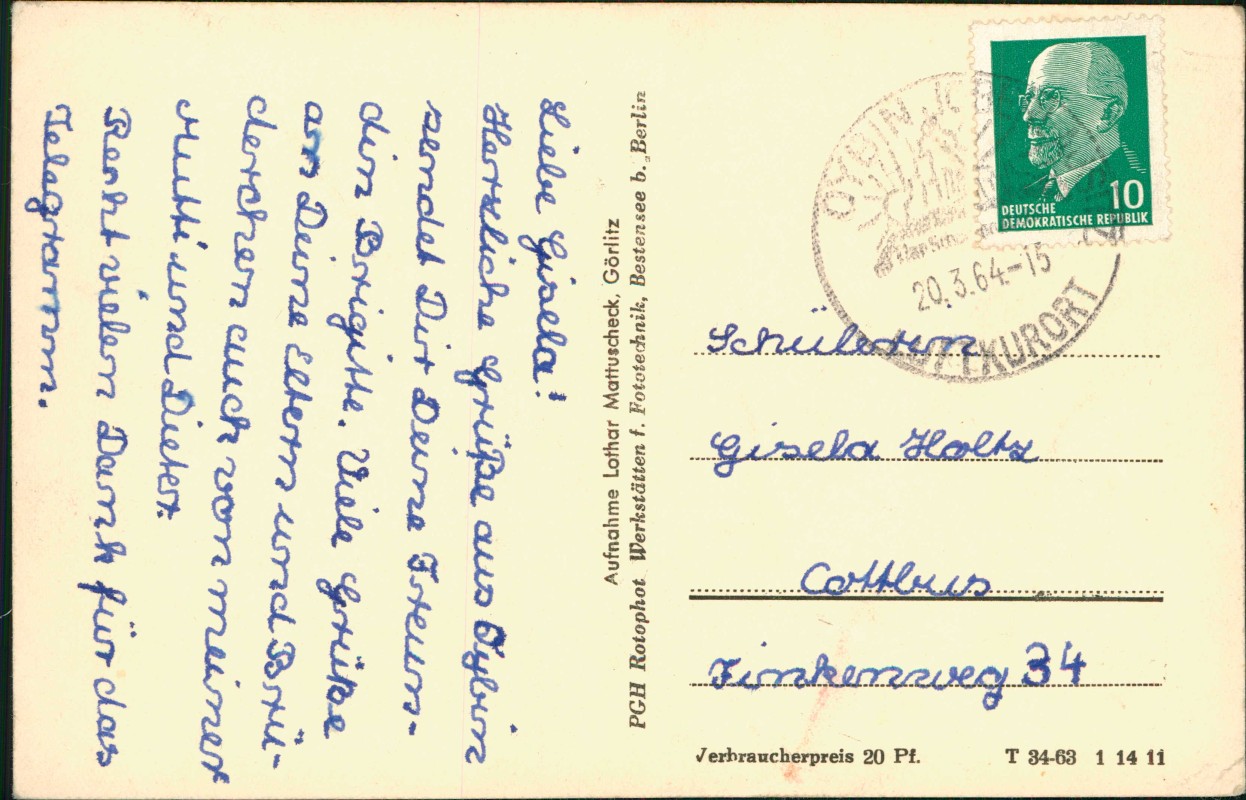 Liebe Gisela!
Herzliche Grüße aus Oybin
sendet Dir Deine Freun-
din Brigitte. Viele Grüße
an Deine Eltern und Brü-
derchen auch von meiner
Mutti und Dieter.
Recht vielen Dank für das
Telegramm.
Aufnahme Lothar Mattuscheck, Görlitz
PGH Rotophot Werkstätten f. Fototechnik, Bestensee b. Berlin
DEUTSCHE
DEMOKRATISCHE REPUBLIK
10
OYBIN
20.3.64-15
LUFTKURORT
Schülerin
Gisela Holtz
Cottbus
Finkenweg 34
Verbraucherpreis 20 Pf. T 34-63 1 14 11